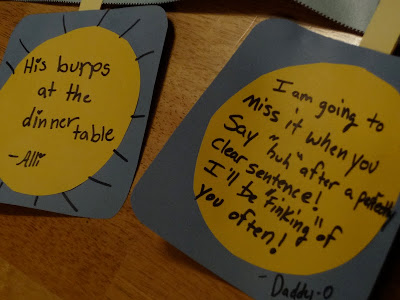 His burps
at the
dinner
table
-Alli
I am going to
miss it when you
Say "huh" after a perfectly
clear sentence!
I'll be "finking" of
you often!
- Daddy-O